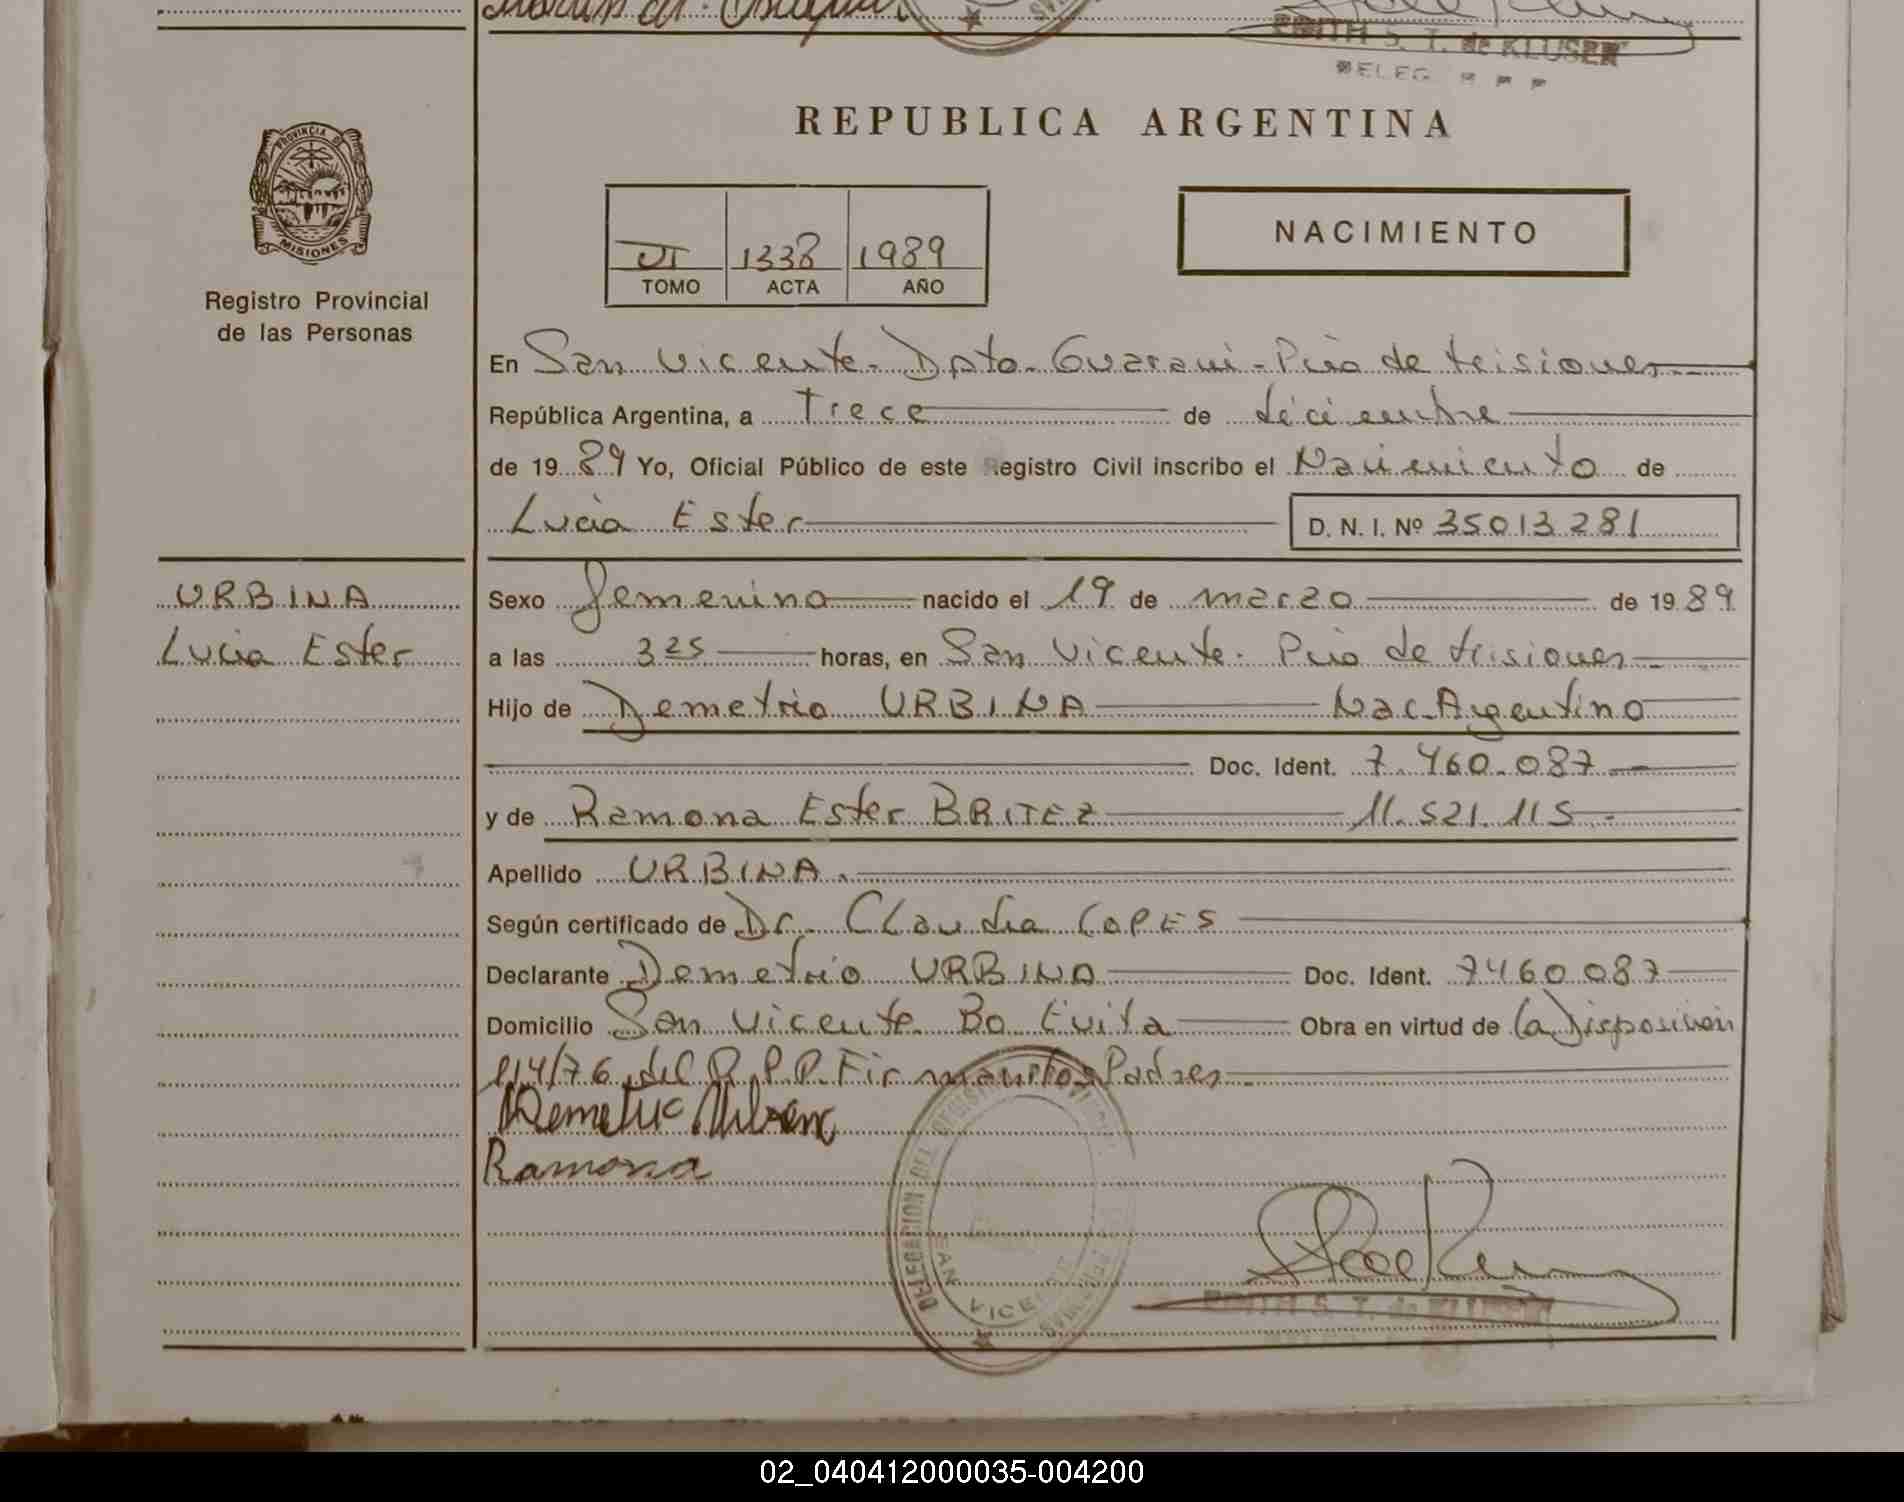 EDITH S. T. de KLUSER
DELEG.
REPUBLICA ARGENTINA
PROVINCIA DE
MISIONES
Registro Provincial
de las Personas
VI 1338 1989
TOMO ACTA AÑO
NACIMIENTO
En San Vicente - Dpto. Guarani - Pcia de Misiones
República Argentina, a Trece de diciembre
de 1989 Yo, Oficial Público de este Registro Civil inscribo el Nacimiento de
Lucia Ester D. N. I. Nº 35013281
URBINA
Lucia Ester
Sexo femenino nacido el 19 de marzo de 1989
a las 3 25 horas, en San Vicente. Pcia de Misiones
Hijo de Demetrio URBINA Nac. Argentino
Doc. Ident. 7.460.087
y de Ramona Ester BRITEZ 11.521.115.
Apellido URBINA.
Según certificado de Dr. Claudia COPES
Declarante Demetrio URBINA Doc. Ident. 7460087
Domicilio San Vicente Bo Evita Obra en virtud de la Disposicion
114/76 del R.P.P. Firman los Padres
Demetrio Urbina
Ramona
DELEGACION DEL REGISTRO PROVINCIAL DE LAS PERSONAS
SAN VICENTE
EDITH S. T. de KLUSER
02_040412000035-004200